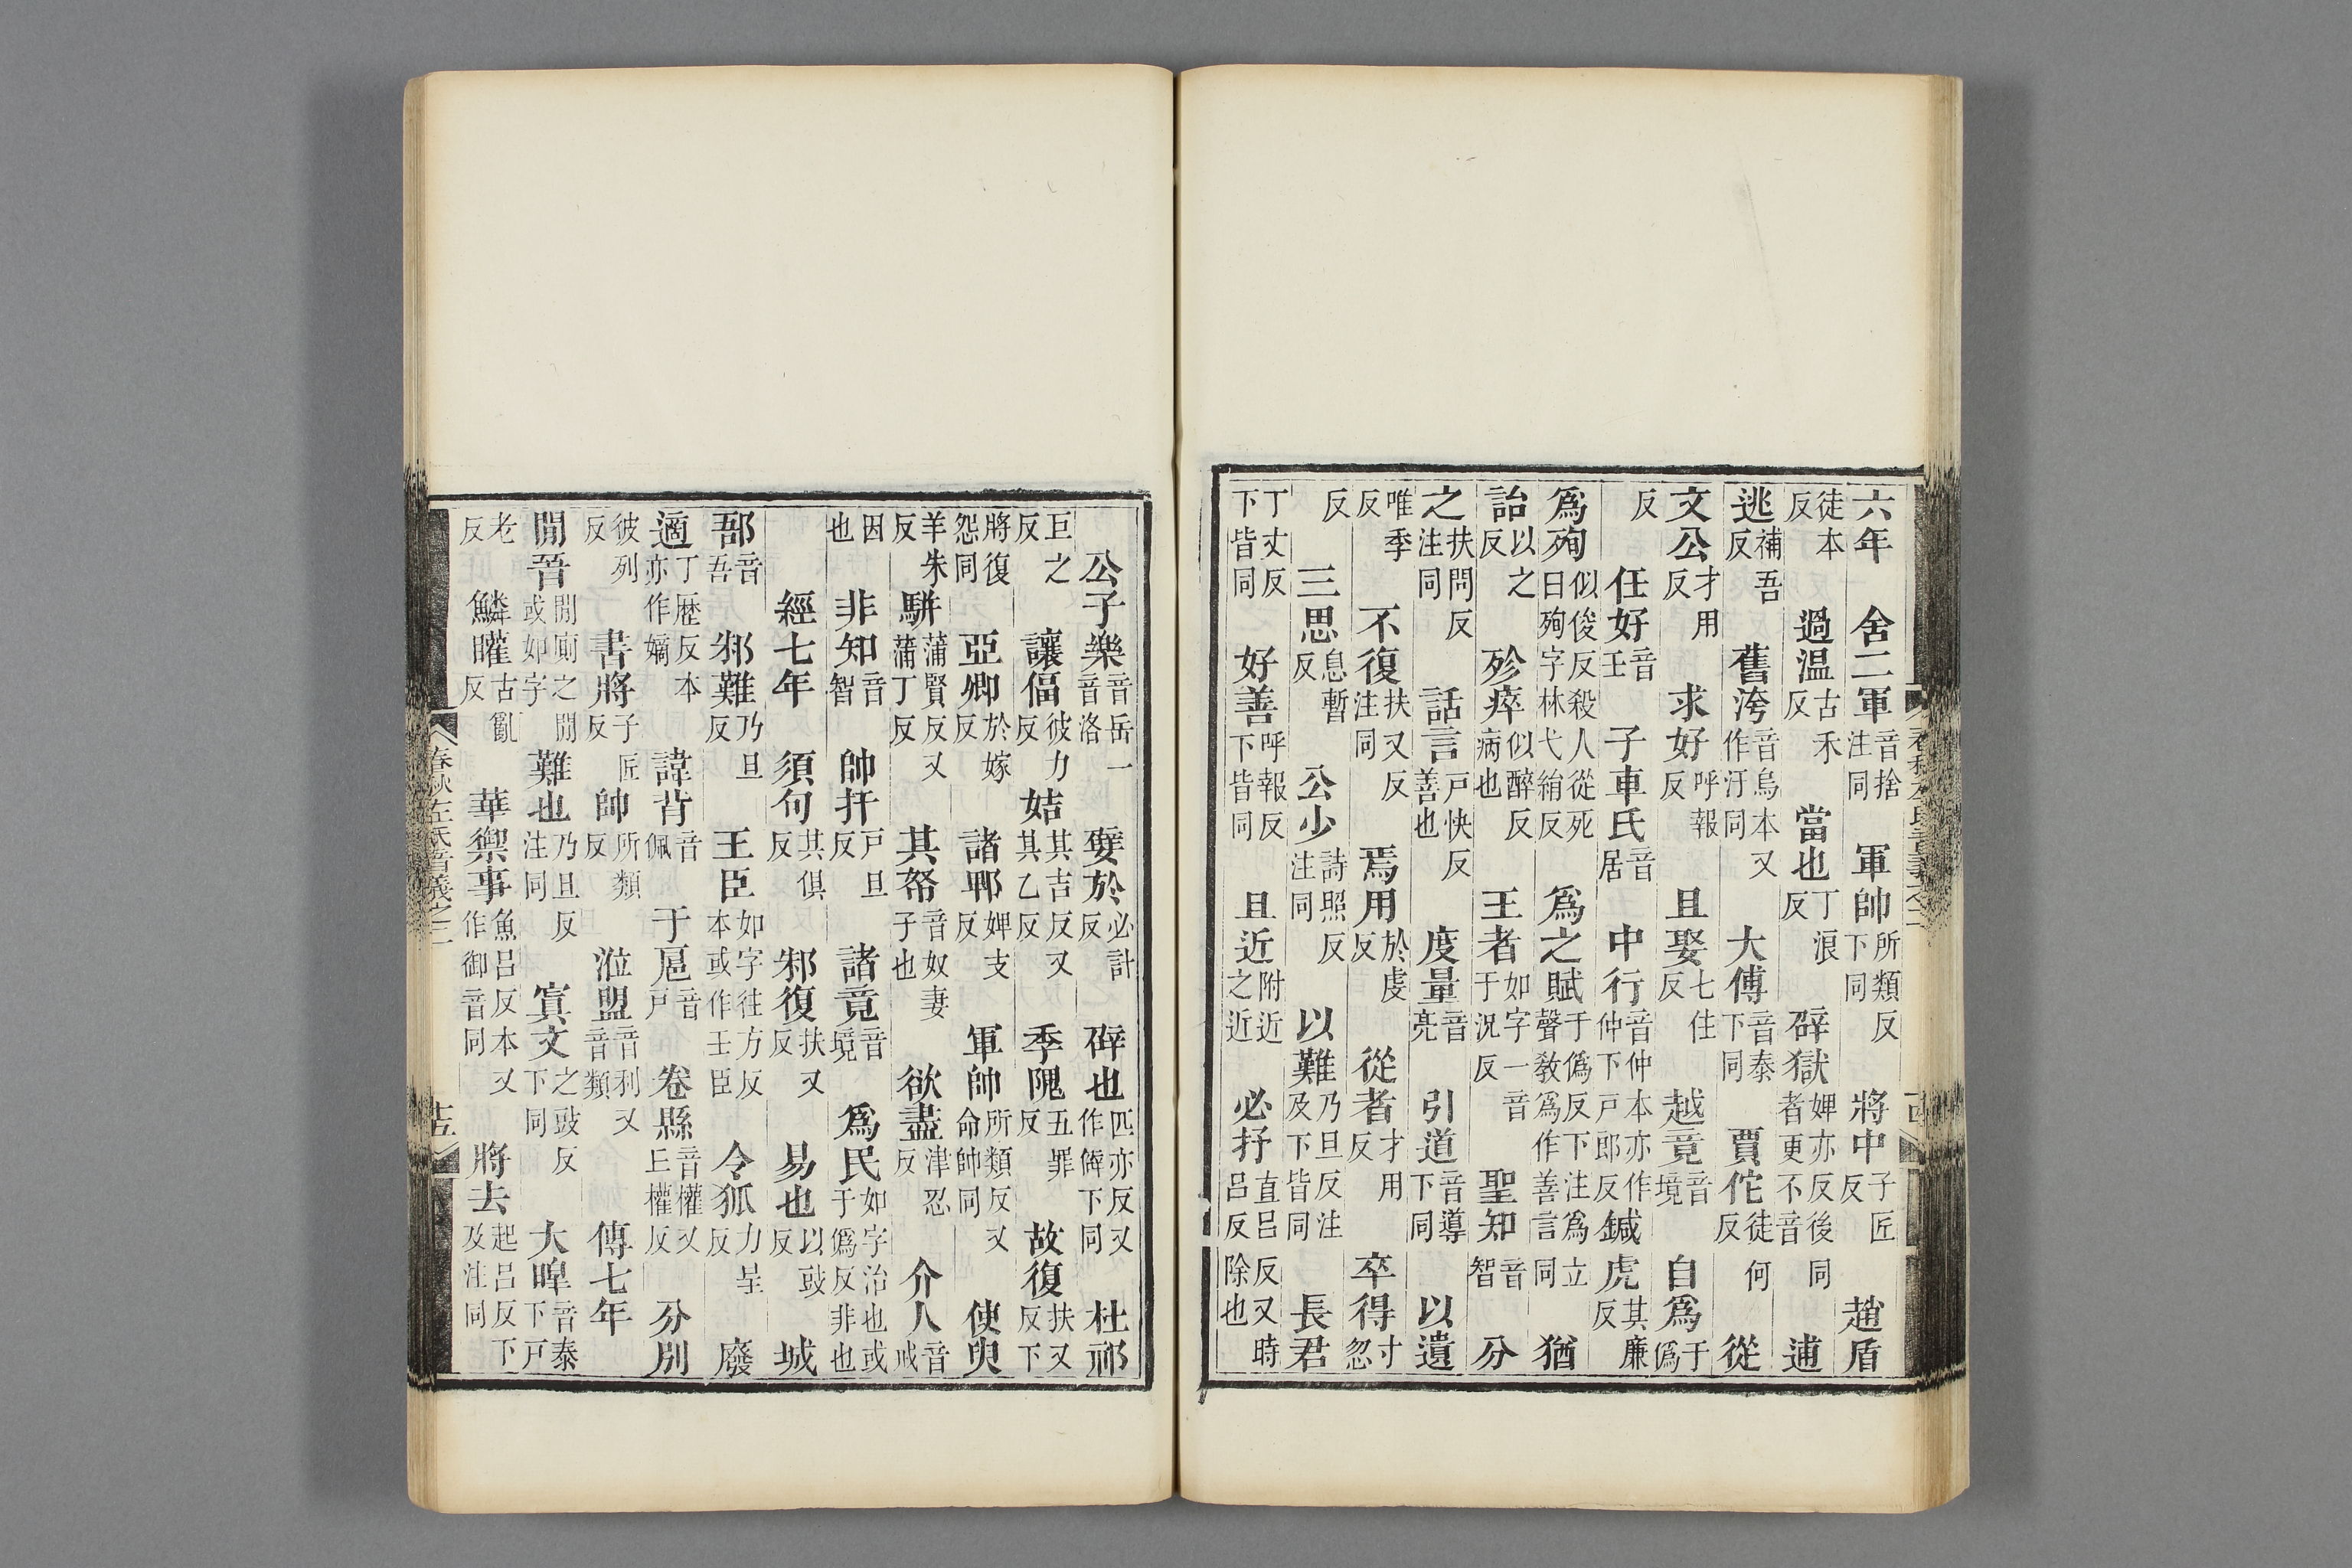 六年　舍二軍音捨注同　軍帥所類反下同　將中子匠反　趙盾
徒本反　過温古禾反　當也丁浪反　辟獄婢亦反後同者更不音　逋
逃補吾反　舊洿音烏本又作汙同　大傅音泰下同　賈佗徒何反　從
文公才用反　求好呼報反　且娶七住反　越竟音境　自爲于僞
反　任好音壬　子車氏音居　中行音仲本亦作仲下戸郎反　鍼虎其廉反
爲殉似俊反殺人從死曰殉字林弋絹反　爲之賦于僞反下注爲立聲教爲作善言同　猶
詒以之反　殄瘁似醉反病也　王者如字一音于況反　聖知音智　分
之扶問反注同　話言戸快反善也　度量音亮　引道音導下同　以遺
唯季反　不復扶又反注同　焉用於虔反　從者才用反　卒得寸忽
反　三思息暫反　公少詩照反注同　以難乃旦反注及下皆同　長君
丁丈反下皆同　好善呼報反下皆同　且近附近之近　必抒直呂反又時呂反除也
公子樂音岳一音洛　嬖於必計反　辟也匹亦反又作僻下同　杜祁
巨之反　讓偪彼力反　姞其吉反又其乙反　季隗五罪反　故復扶又反下
將復怨同　亞卿於嫁反　諸郫婢支反　軍帥所類反又命帥同　使臾
羊朱反　駢蒲賢反又蒲丁反　其帑音奴妻子也　欲盡津忍反　介人音戒
因也　非知音智　帥扞戸旦反　諸竟音境　爲民如字治也或于僞反非也
經七年　須句其俱反　邾復扶又反　易也以豉反　城
郚音吾　邾難乃旦反　王臣如字徃方反本或作壬臣　令狐力呈反　廢
適丁歴反本亦作嫡　諱背音佩　于扈音戸　卷縣音權又㠪權反　分別
彼列反　書將子匠反　帥所類反　涖盟音利又音類　傳七年
閒晉閒厠之閒或如字　難也乃旦反注同　寘文之豉反下同　大皥音泰下戸
老反　鱗矔古亂反　華禦事魚呂反本又作御音同　將去起呂反下及注同
春秋左氏音義之二
十五